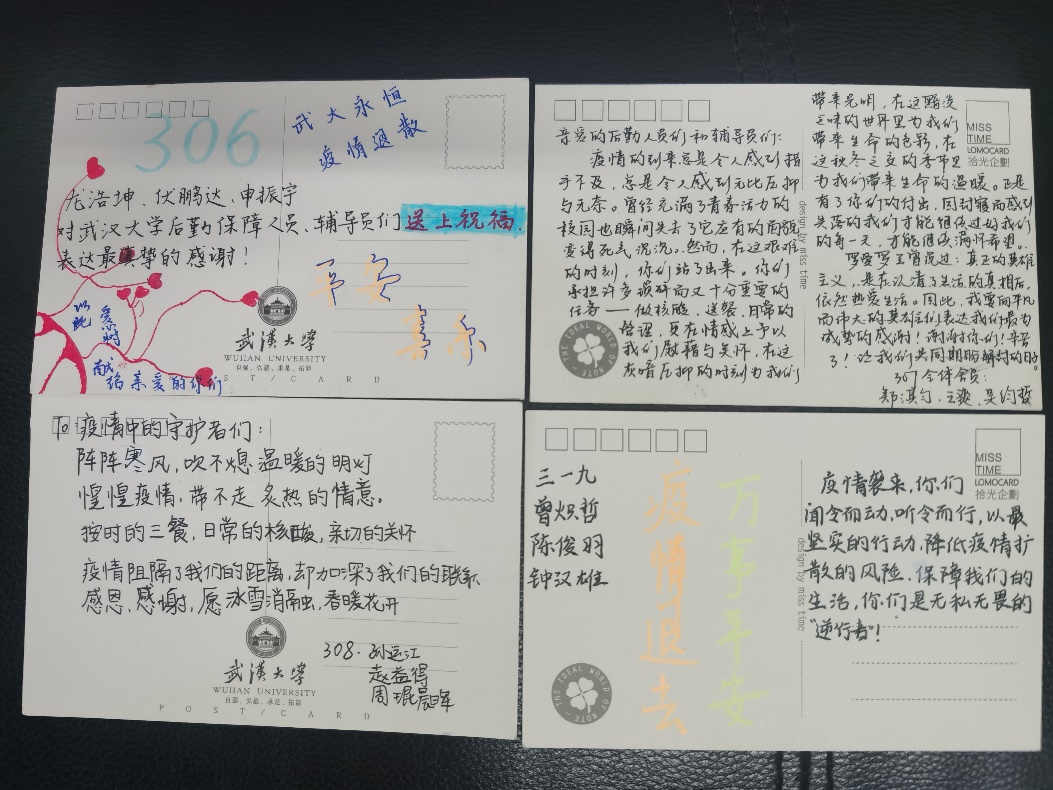 306
武大永恒
疫情退散
龙浩坤、伏鹏达、申振宇
对武汉大学后勤保障人员、辅导员们送上祝福.
表达最真挚的感谢！
平安
喜乐
以此
爱时
献给亲爱的你们
武漢大學
WUHAN UNIVERSITY
自强、弘毅、求是、拓新
POST/CARD
亲爱的后勤人员们和辅导员们:
疫情的到来总是令人感到措
手不及，总是令人感到无比压抑
与无奈。曾经充满了青春活力的
校园也瞬间失去了它应有的面貌
变得死气沉沉。然而，在这艰难
的时刻，你们站了出来。你们
承担许多琐碎而又十分重要的
任务——做核酸、送餐、日常的
管理，更在情感上予以
我们慰藉与关怀，在这
灰暗压抑的时刻为我们
带来光明，在这黯淡
乏味的世界里为我们
带来生命的色彩，在
这秋冬之交的季节里
为我们带来生命的温暖。正是
有了你们的付出，因封寝而感到
失落的我们才能继续过好我们
的每一天，才能继续满怀希望。
罗曼罗兰曾说过：真正的英雄
主义，是在认清了生活的真相后，
依然热爱生活。因此，我要向平凡
而伟大的英雄们表达我们最为
诚挚的感谢！谢谢你们！辛苦
了！让我们共同期盼解封的明
307全体舍员:
郑淇匀、王奕、吴约哲
MISS
TIME
LOMOCARD
拾光企劃
design by miss time
THE IDEAL WORLD OF NOTE
To 疫情中的守护者们：
阵阵寒风，吹不熄温暖的明灯
惶惶疫情，带不走炙热的情意。
按时的三餐，日常的核酸，亲切的关怀
疫情阻隔了我们的距离，却加深了我们的联系
感恩、感谢，愿冰雪消融，春暖花开
308·孙运江
赵益得
周琨晨
武漢大學
WUHAN UNIVERSITY
自强、弘毅、求是、拓新
POST/CARD
三一九
曾炽哲
陈俊羽
钟汉雄
疫情退去
万事平安
疫情袭来，你们
闻令而动，听令而行，以最
坚实的行动，降低疫情扩
散的风险、保障我们的
生活，你们是无私无畏的
“逆行者”！
MISS
TIME
LOMOCARD
拾光企劃
design by miss time
THE IDEAL WORLD OF NOTE